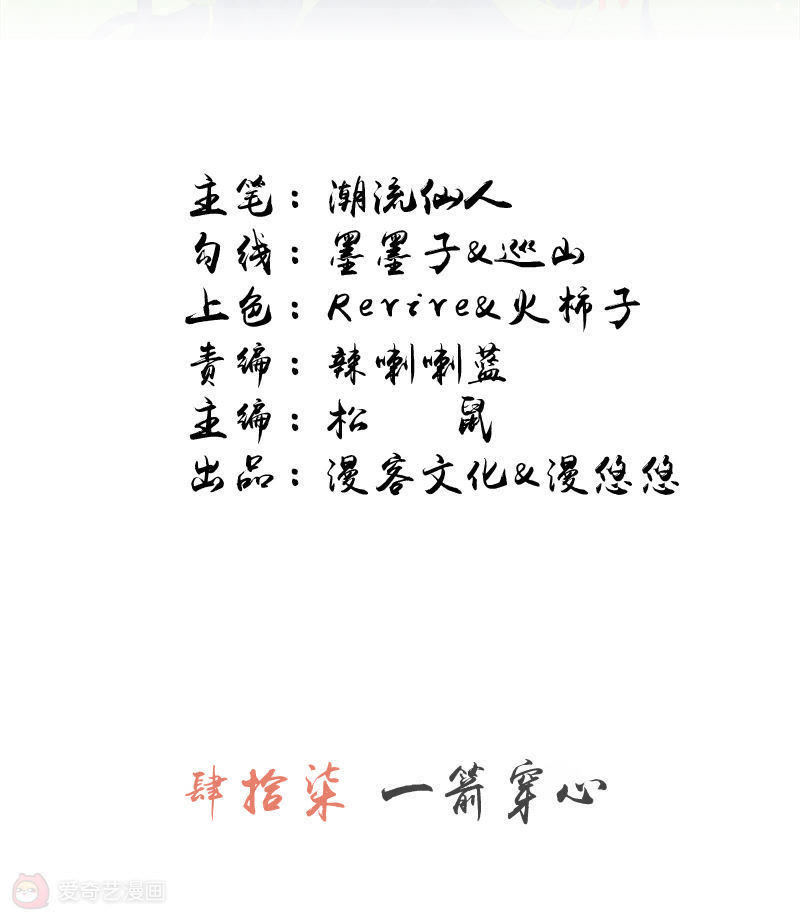 主笔：潮流仙人
勾线：墨墨子&巡山
上色：Rerire&火柿子
责编：辣喇喇蓝
主编：松 鼠
出品：漫客文化&漫悠悠
肆拾柒 一箭穿心
爱奇艺漫画